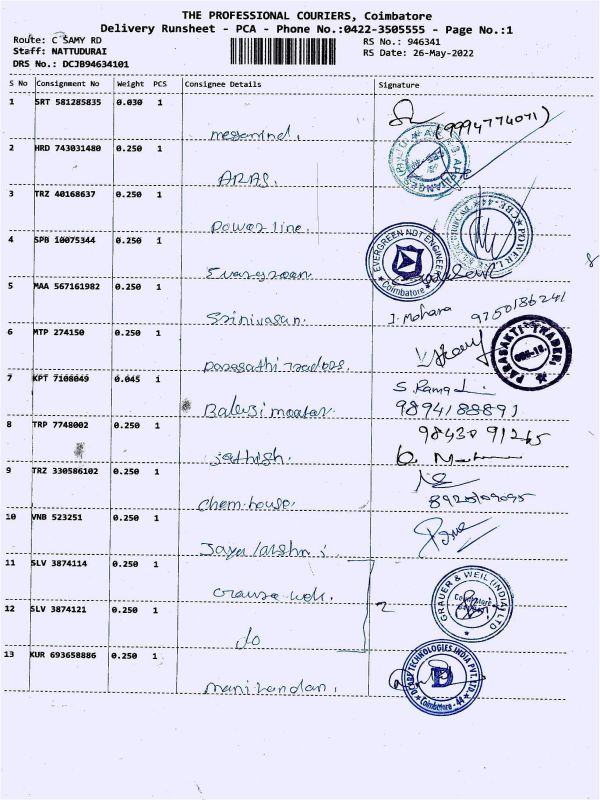 THE PROFESSIONAL COURIERS, Coimbatore
Delivery Runsheet - PCA - Phone No.:0422-3505555 - Page No.:1
Route: C SAMY RD
RS No.: 946341
Staff: NATTUDURAI
RS Date: 26-May-2022
DRS No.: DCJB94634101
S No Consignment No Weight PCS Consignee Details Signature
1 SRT 581285835 0.030 1
megamind. (9994774071)
2 HRD 743031480 0.250 1
ARAS.
3 TRZ 40168637 0.250 1
Power line.
4 SPB 10075344 0.250 1
EVERGREEN NDT ENGINEE
Coimbatore
Evergreen.
5 MAA 567161982 0.250 1
Srinivasan. J. Mohana 9750186241
6 MTP 274150 0.250 1
PARASAKTI TRADERS
7 KPT 7108049 0.045 1
S. Rama
9894188891
8 TRP 7748002 0.250 1
98430 91265
jathish.
9 TRZ 330586102 0.250 1
chem house.
10 VNB 523251 0.250 1
11 SLV 3874114 0.250 1
GRAUER & WEIL (INDIA) LTD
Coimbatore
12 SLV 3874121 0.250 1
2
do
13 KUR 693658886 0.250 1
TECHNOLOGIES INDIA PVT. LTD.
D
Coimbatore - 44
manikandan.